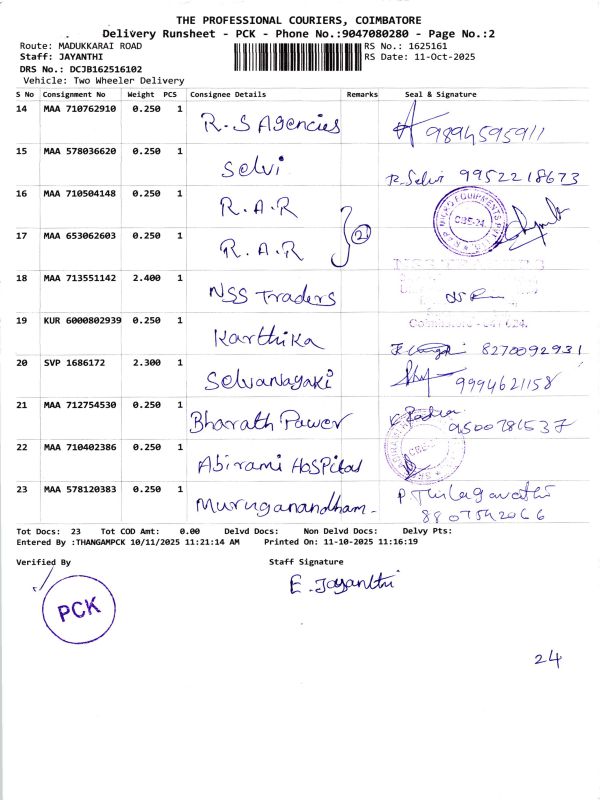 THE PROFESSIONAL COURIERS, COIMBATORE
Delivery Runsheet - PCK - Phone No.:9047080280 - Page No.:2
Route: MADUKKARAI ROAD RS No.: 1625161
Staff: JAYANTHI RS Date: 11-Oct-2025
DRS No.: DCJB162516102
Vehicle: Two Wheeler Delivery
S No Consignment No Weight PCS Consignee Details Remarks Seal & Signature
14 MAA 710762910 0.250 1 R.S Agencies 9894595911
15 MAA 578036620 0.250 1 Selvi R.Selvi 9952218673
16 MAA 710504148 0.250 1 R.A.R
17 MAA 653062603 0.250 1 R.A.R 2
18 MAA 713551142 2.400 1 NSS Traders
19 KUR 6000802939 0.250 1 Karthika 8270092931
20 SVP 1686172 2.300 1 Selvanayaki 9994621158
21 MAA 712754530 0.250 1 Bharath Power 9500781537
22 MAA 710402386 0.250 1 Abirami Hospital
23 MAA 578120383 0.250 1 Muruganandham. P. Thilagavathi
8807542066
Tot Docs: 23 Tot COD Amt: 0.00 Delvd Docs: Non Delvd Docs: Delvy Pts:
Entered By :THANGAMPCK 10/11/2025 11:21:14 AM Printed On: 11-10-2025 11:16:19
Verified By Staff Signature
E. Jayanthi
PCK
24